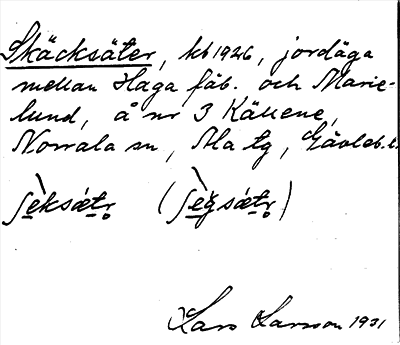 Skäcksäter, kb 1926, jordäga
mellan Haga fäb. och Marie-
lund, å nr 3 Källene,
Norrala sn, Ala tg, Gävleb. l.
ʃèksǽtr̥ (ʃègsǽtr̥)
Lars Larsson 1931